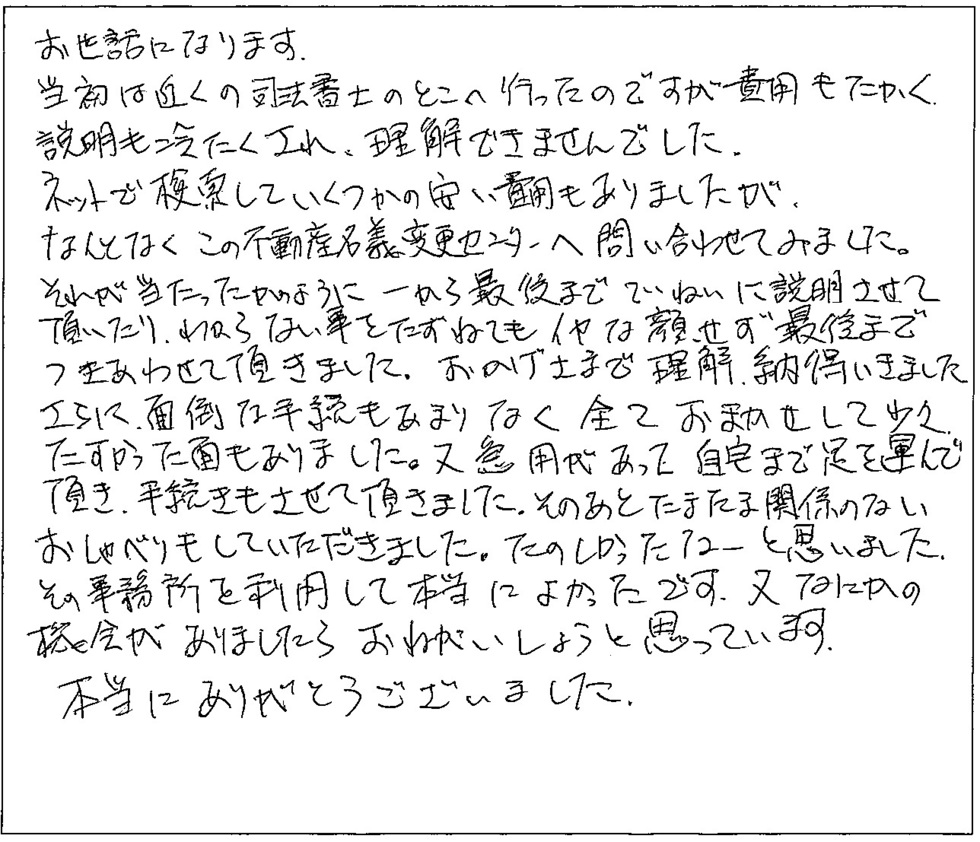 お世話になります.
当初は近くの司法書士のとこへ行ったのですが費用もたかく.
説明も冷たくされ、理解できませんでした.
ネットで検索していくつかの安い費用もありましたが、
なんとなくこの不動産名義変更センターへ問い合わせてみました。
それが当たったかのように一から最後までていねいに説明させて
頂いたり、わからない事をたずねてもイヤな顔せず最後まで
つきあわせて頂きました。おかげさまで理解、納得いきました
さらに、面倒な手続もあまりなく全ておまかせして少々
たすかった面もありました。又急用があって自宅まで足を運んで
頂き、手続きもさせて頂きました.そのあとたまたま関係のない
おしゃべりもしていただきました。たのしかったねーと思いました.
その事務所を利用して本当によかったです.又なにかの
機会がありましたらおねがいしようと思っています.
本当にありがとうございました.